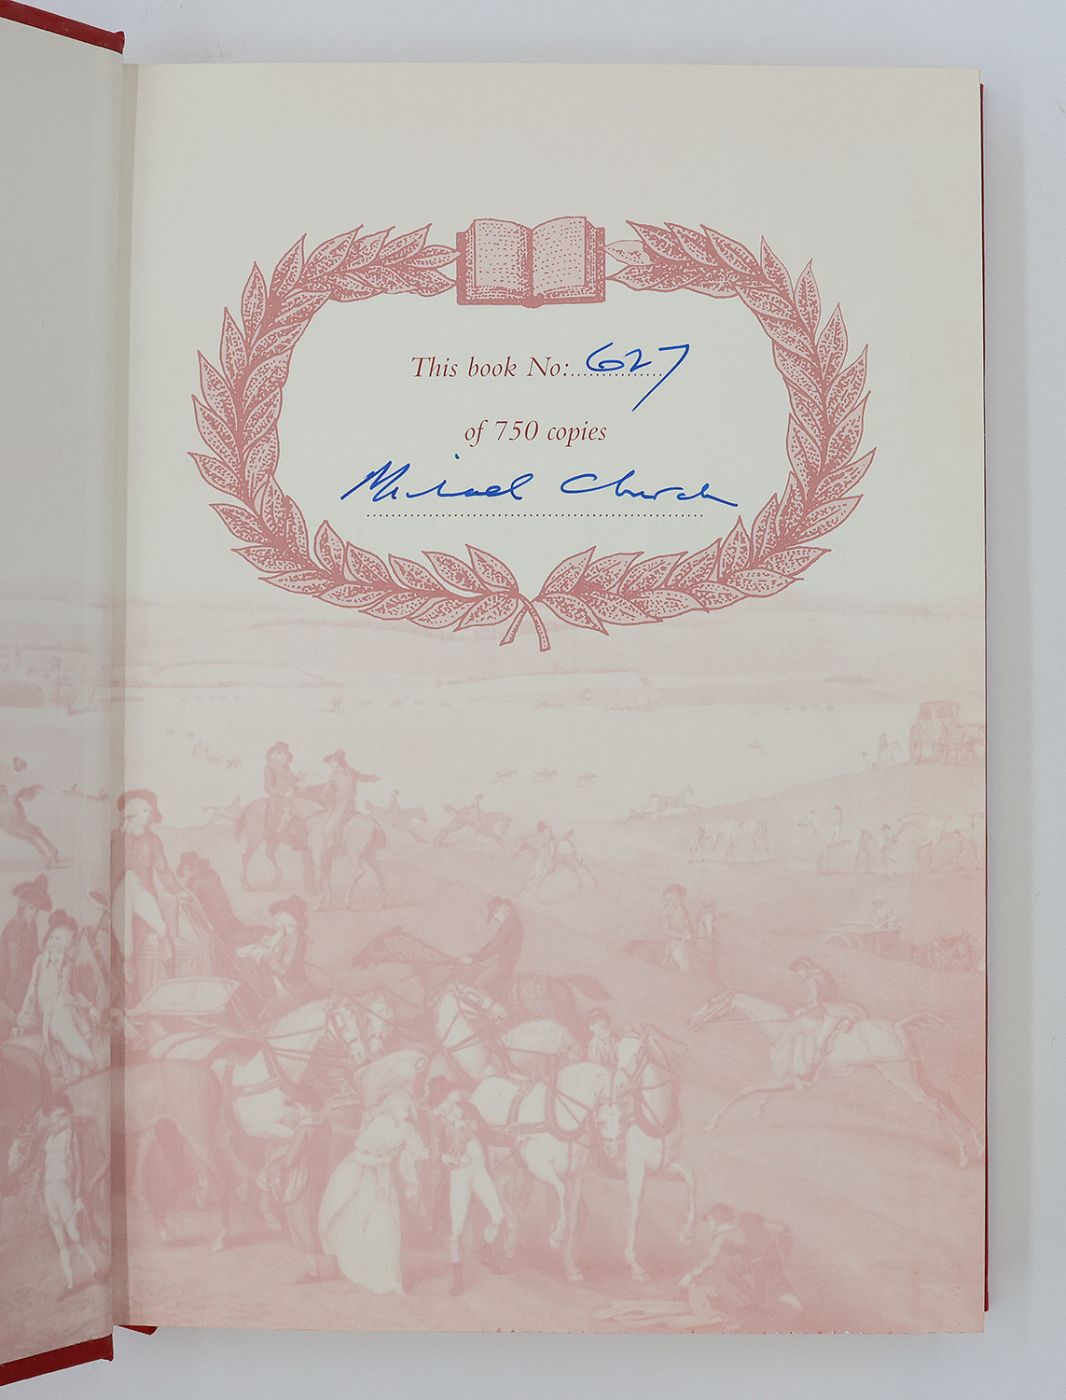 This book No: 627
of 750 copies
Michael Church